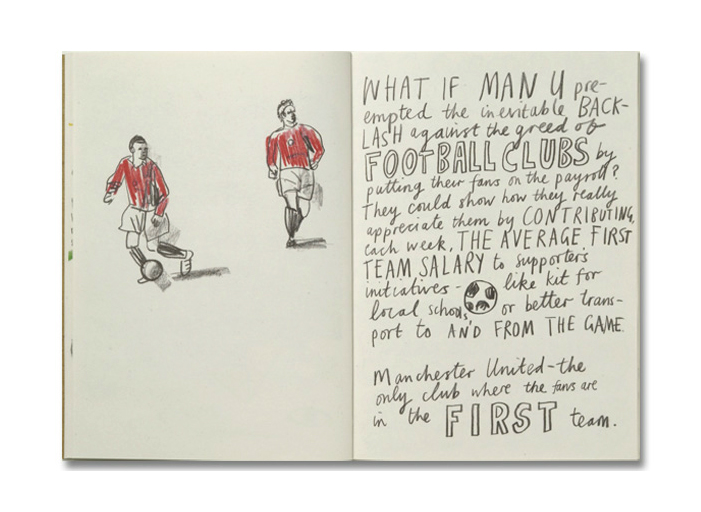 WHAT IF MAN U pre-
empted the inevitable BACK-
LASH against the greed of
FOOTBALL CLUBS by
putting their fans on the payroll?
They could show how they really
appreciate them by CONTRIBUTING,
each week, THE AVERAGE FIRST
TEAM SALARY to supporter's
initiatives - like kit for
local schools or better trans-
port to AND FROM THE GAME.
Manchester United - the
only club where the fans are
in the FIRST team.